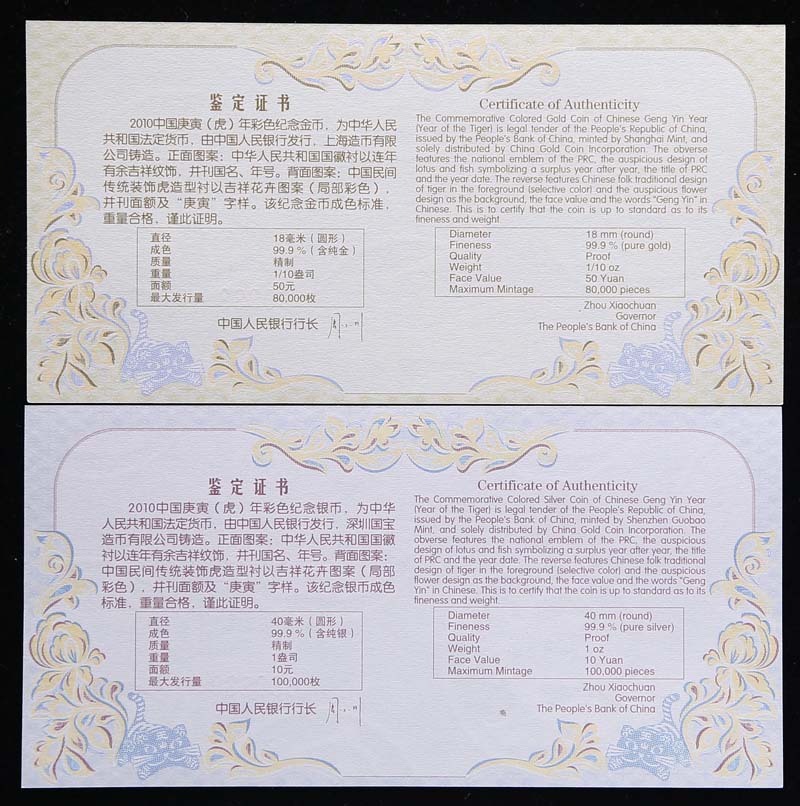 鉴定证书
2010中国庚寅（虎）年彩色纪念金币，为中华人民
共和国法定货币，由中国人民银行发行，上海造币有限
公司铸造。正面图案：中华人民共和国国徽衬以连年
有余吉祥纹饰，并刊国名、年号。背面图案：中国民间
传统装饰虎造型衬以吉祥花卉图案（局部彩色），
并刊面额及“庚寅”字样。该纪念金币成色标准，
重量合格，谨此证明。
直径 18毫米（圆形）
成色 99.9%（含纯金）
质量 精制
重量 1/10盎司
面额 50元
最大发行量 80,000枚
中国人民银行行长
Certificate of Authenticity
The Commemorative Colored Gold Coin of Chinese Geng Yin Year
(Year of the Tiger) is legal tender of the People's Republic of China,
issued by the People's Bank of China, minted by Shanghai Mint, and
solely distributed by China Gold Coin Incorporation. The obverse
features the national emblem of the PRC, the auspicious design of
lotus and fish symbolizing a surplus year after year, the title of PRC
and the year date. The reverse features Chinese folk traditional design
of tiger in the foreground (selective color) and the auspicious flower
design as the background, the face value and the words "Geng Yin" in
Chinese. This is to certify that the coin is up to standard as to its
fineness and weight.
Diameter 18 mm (round)
Fineness 99.9 % (pure gold)
Quality Proof
Weight 1/10 oz
Face Value 50 Yuan
Maximum Mintage 80,000 pieces
Zhou Xiaochuan
Governor
The People's Bank of China
鉴定证书
2010中国庚寅（虎）年彩色纪念银币，为中华
人民共和国法定货币，由中国人民银行发行，深圳国宝
造币有限公司铸造。正面图案：中华人民共和国国徽
衬以连年有余吉祥纹饰，并刊国名、年号。背面图案：
中国民间传统装饰虎造型衬以吉祥花卉图案（局部
彩色），并刊面额及“庚寅”字样。该纪念银币成色
标准，重量合格，谨此证明。
直径 40毫米（圆形）
成色 99.9%（含纯银）
质量 精制
重量 1盎司
面额 10元
最大发行量 100,000枚
中国人民银行行长
Certificate of Authenticity
The Commemorative Colored Silver Coin of Chinese Geng Yin Year
(Year of the Tiger) is legal tender of the People's Republic of China,
issued by the People's Bank of China, minted by Shenzhen Guobao
Mint, and solely distributed by China Gold Coin Incorporation. The
obverse features the national emblem of the PRC, the auspicious
design of lotus and fish symbolizing a surplus year after year, the title
of PRC and the year date. The reverse features Chinese folk traditional
design of tiger in the foreground (selective color) and the auspicious
flower design as the background, the face value and the words "Geng
Yin" in Chinese. This is to certify that the coin is up to standard as to its
fineness and weight.
Diameter 40 mm (round)
Fineness 99.9 % (pure silver)
Quality Proof
Weight 1 oz
Face Value 10 Yuan
Maximum Mintage 100,000 pieces
Zhou Xiaochuan
Governor
The People's Bank of China